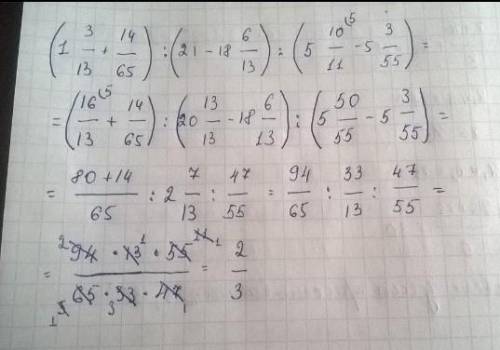 (1 3/13 + 14/65) : (21 - 18 6/13) : (5 10/11 (5 - 5 3/55) =
= (16/13 (5 + 14/65) : (20 13/13 - 18 6/13) : (5 50/55 - 5 3/55) =
= 80+14/65 : 2 7/13 : 47/55 = 94/65 : 33/13 : 47/55 =
= 2 94 · 13 1 · 55 11 1 / 1 5 65 · 3 33 · 47 1 = 2/3